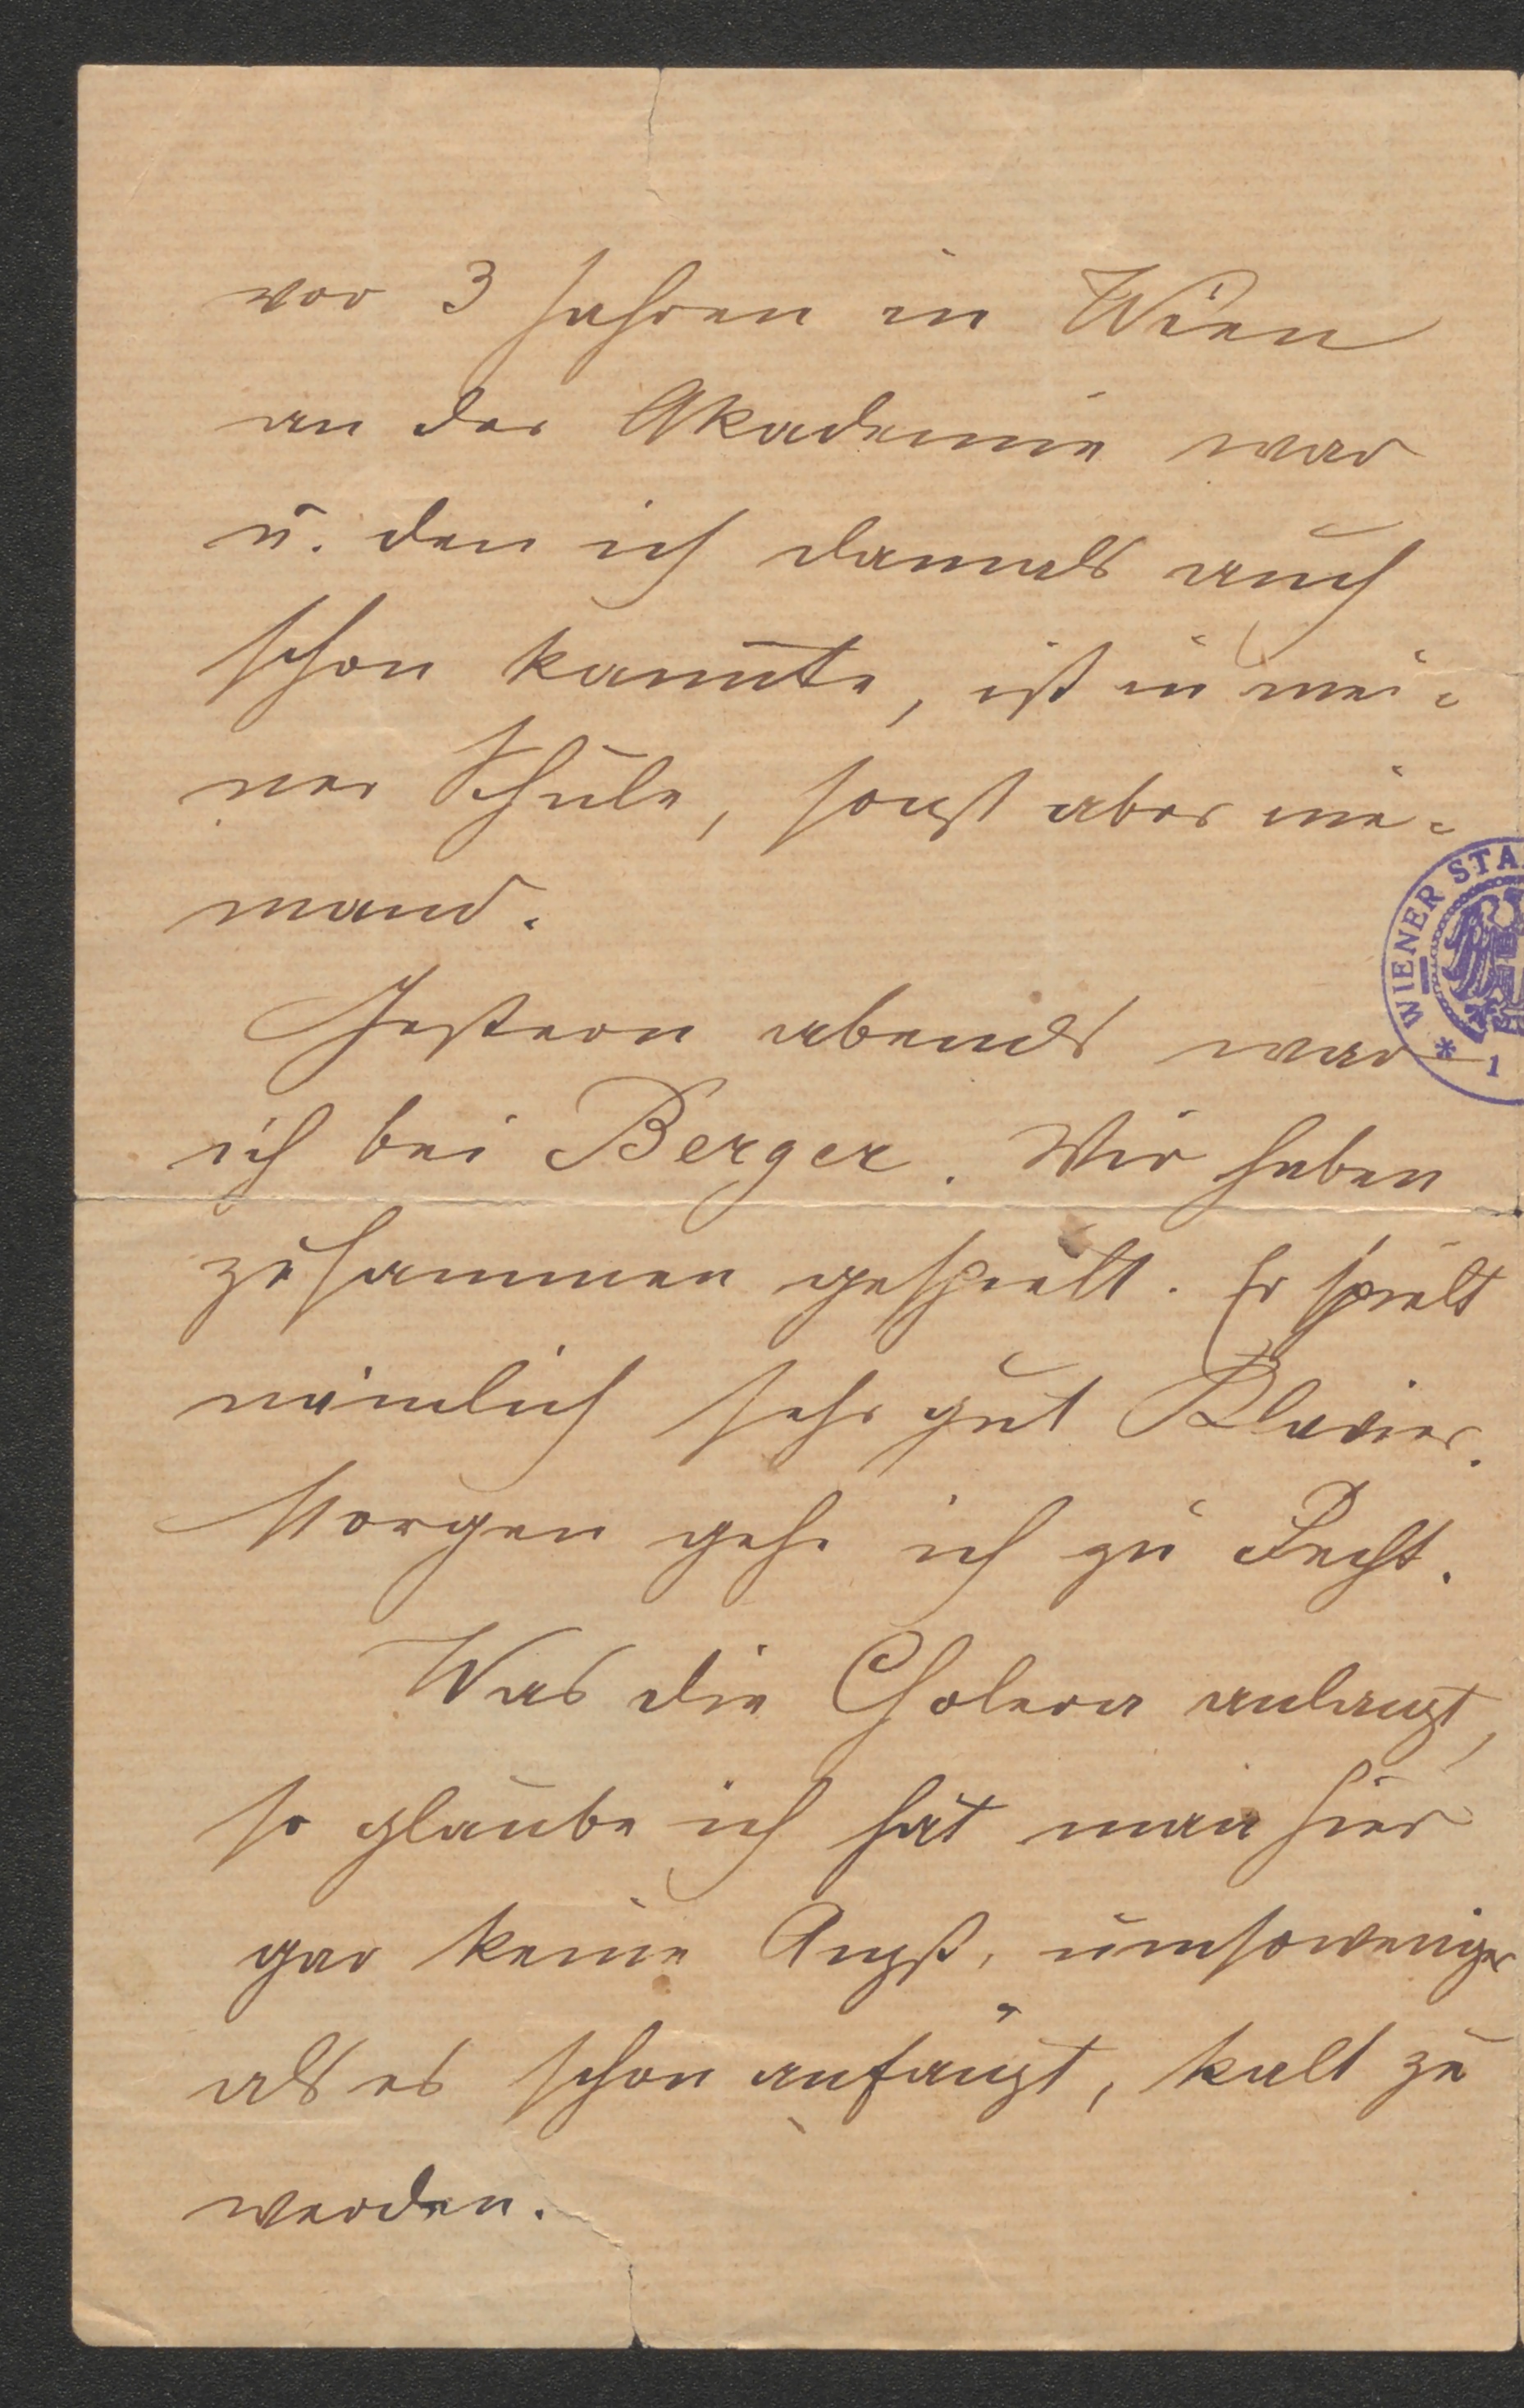 vor 3 Jahren in Wien
an der Akademie war
u. den ich damals auch
schon kannte, ist in mei-
ner Schule, sonst aber nie-
mand.
Gestern abends war
ich bei Berger. Wir haben
zusammen gespielt. Er spielt
nämlich sehr gut Klavier.
Morgen gehe ich zu Hecht.
Was die Cholera anlangt,
so glaube ich hat man hier
gar keine Angst, umsoweniger
als es schon anfängt, kalt zu
werden.
WIENER STA
* 1